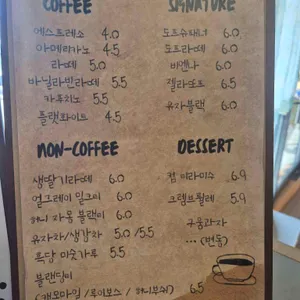 COFFEE
에스프레소 4.0
아메리카노 4.5
라떼 5.0
바닐라빈라떼 5.5
카푸치노 5.5
플랫화이트 4.5
SIGNATURE
6.0
도프라떼 6.0
비엔나 6.0
젤라또프 6.5
유자블랙 6.0
NON-COFFEE
생딸기라떼 6.0
얼그레이 밀크티 6.0
허니 자몽 블랙티 6.0
유자차/생강차 5.0/5.5
흑당 미숫가루 5.5
블랜딩티
(캐모마일/루이보스/허니부쉬) 6.5
DESSERT
컵 티라미수 5.9
크렘브륄레 5.9
구움과자
...(변동)